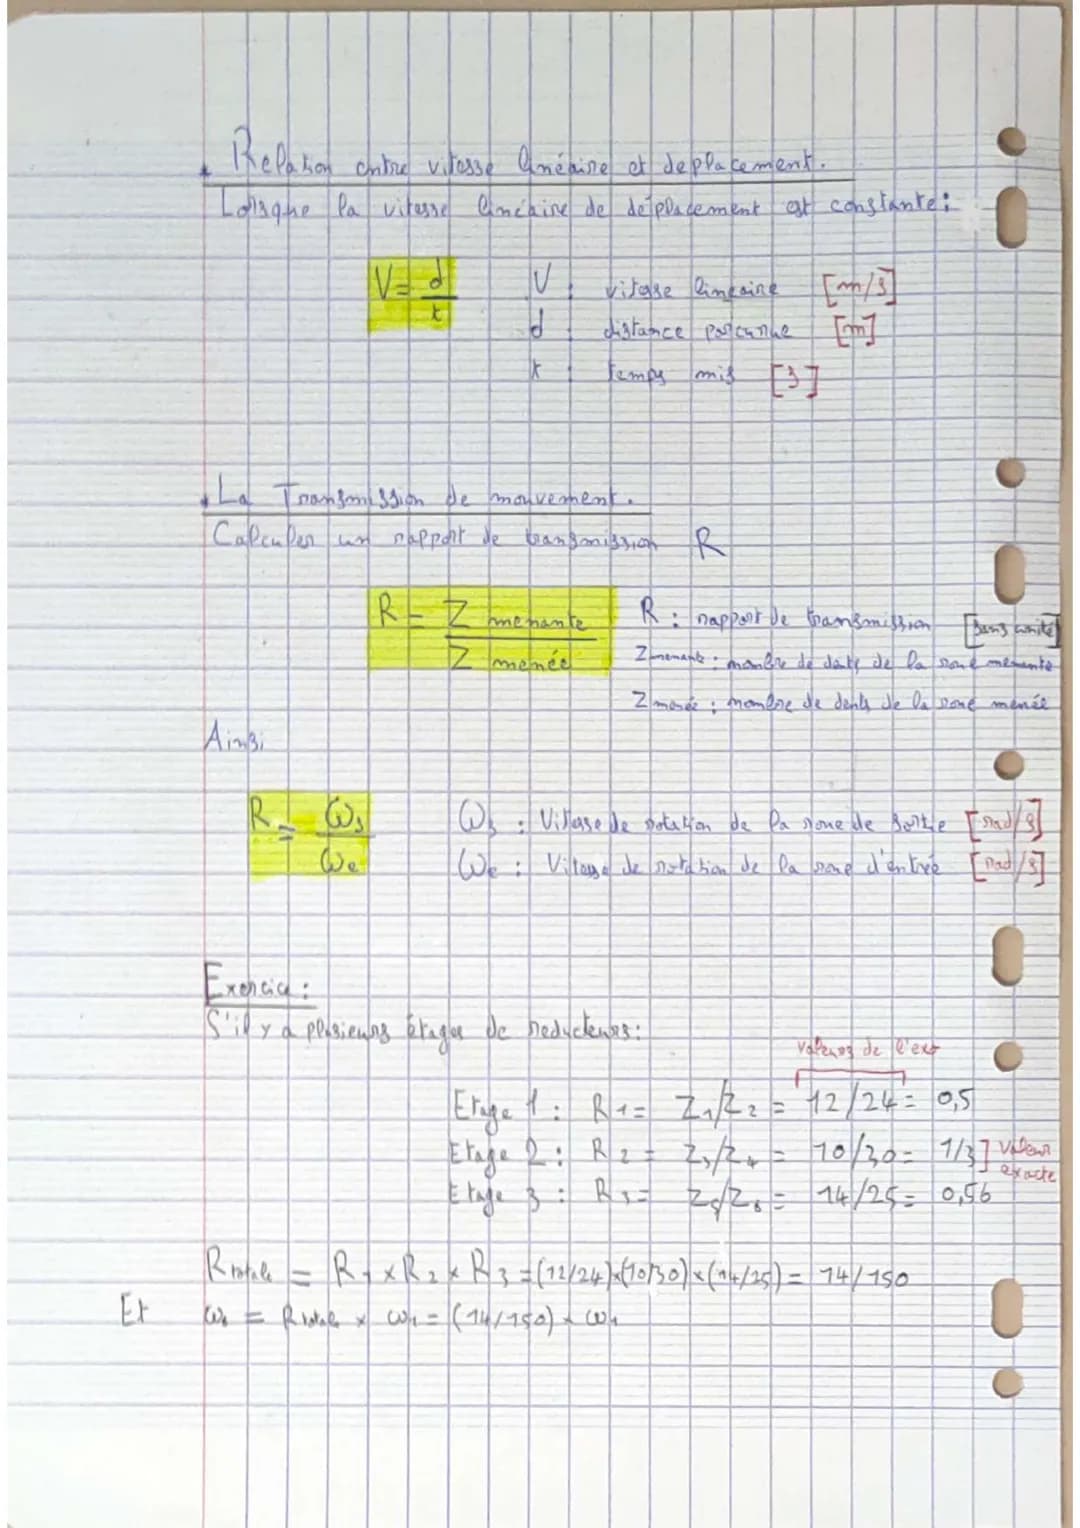 Relation entre vitesse linéaire et deplacement.
Lorsque la vitesse linéaire de déplacement est constante :
V = d/t
V : vitesse linéaire [m/s]
d : distance parcourue [m]
t : temps mis [s]
La Transmission de mouvement.
Calculer un rapport de transmission R
R = Z menante / Z menée
R : rapport de transmission [sans unité]
Z menante : nombre de dents de la roue menante
Z menée : nombre de dents de la roue menée
Ainsi
R = ωs/ωe
ωs : Vitesse de rotation de la roue de sortie [rad/s]
ωe : Vitesse de rotation de la roue d'entrée [rad/s]
Exercice :
S'il y a plusieurs étages de reducteurs :
valeurs de l'exo
Etage 1 : R1 = Z1/Z2 = 12/24 = 0,5
Etage 2 : R2 = Z3/Z4 = 10/30 = 1/3 ] valeur exacte
Etage 3 : R3 = Z5/Z6 = 14/25 = 0,56
Rtotale = R1 x R2 x R3 = (12/24)x(10/30)x(14/25) = 14/150
Et ω6 = Rtotale x ω1 = (14/150) x ω1